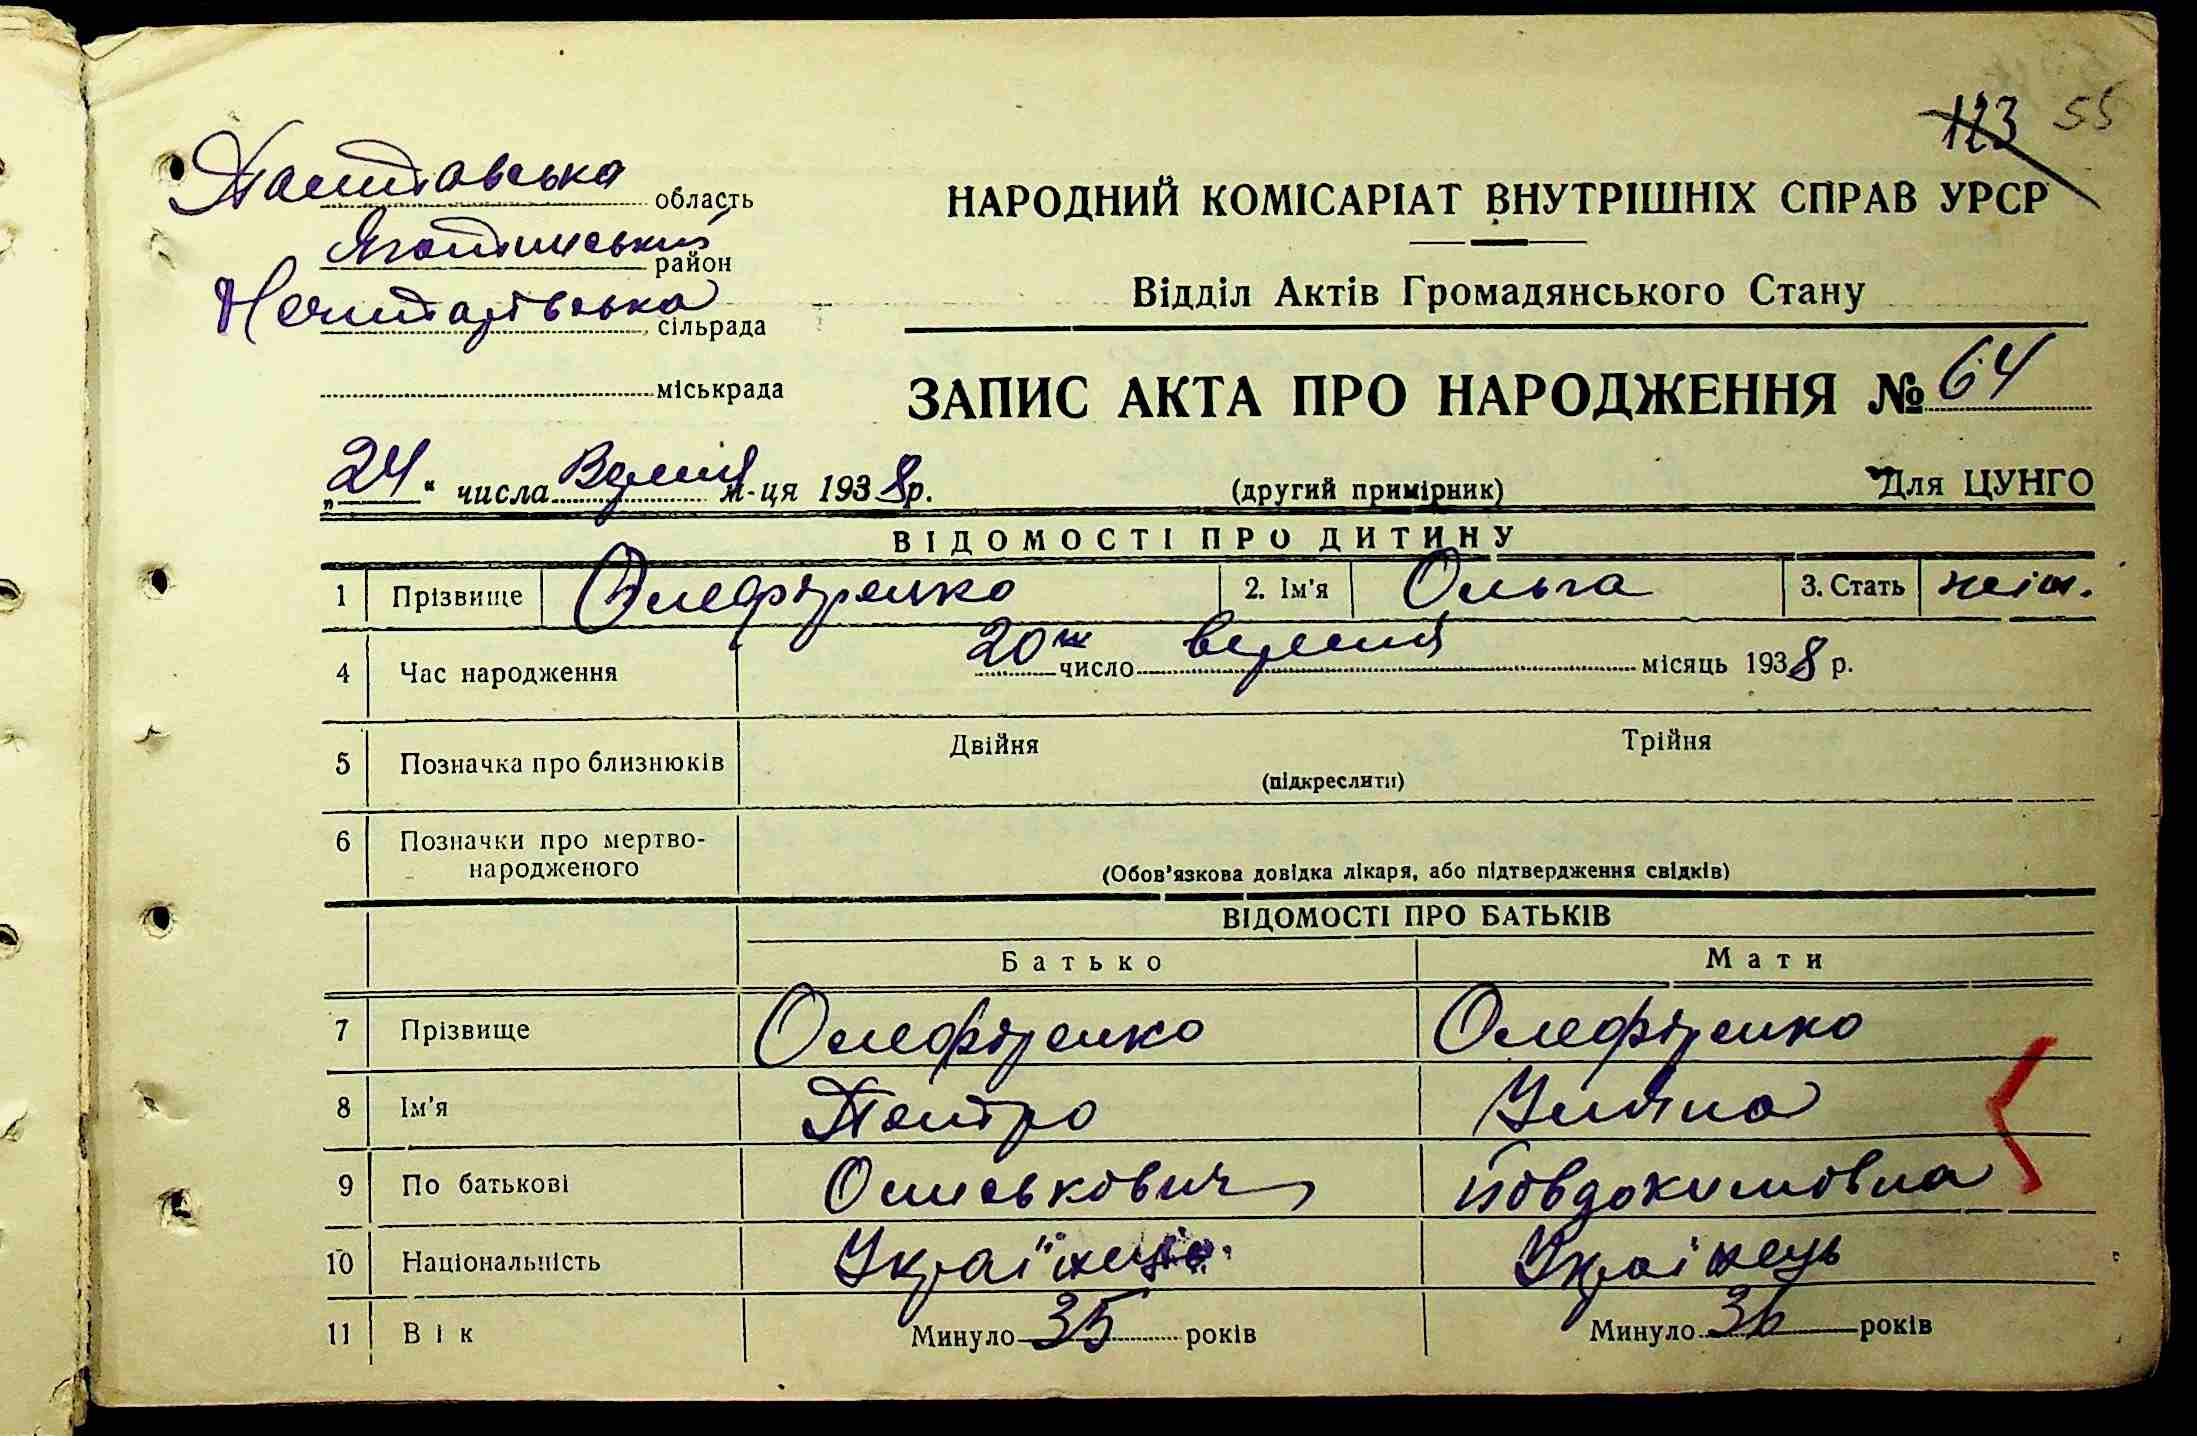 123 55
Полтавська область
НАРОДНИЙ КОМІСАРІАТ ВНУТРІШНІХ СПРАВ УРСР
Яготинський район
Відділ Актів Громадянського Стану
сільрада
міськрада
ЗАПИС АКТА ПРО НАРОДЖЕННЯ № 64
„24“ числа Вересня м-ця 1938р.
(другий примірник)
Для ЦУНГО
ВІДОМОСТІ ПРО ДИТИНУ
1 Прізвище Олефіренко 2. Ім'я Ольга 3. Стать жін.
4 Час народження 20го число вересня місяць 1938 р.
5 Позначка про близнюків Двійня Трійня
(підкреслити)
6 Позначки про мертво-
народженого
(Обов'язкова довідка лікаря, або підтвердження свідків)
ВІДОМОСТІ ПРО БАТЬКІВ
Батько Мати
7 Прізвище Олефіренко Олефіренко
8 Ім'я Петро Уляна
9 По батьковіОниськович Йовдокимовна
10 Національність Українець Українець
11 Вік Минуло 35 років Минуло 36 років